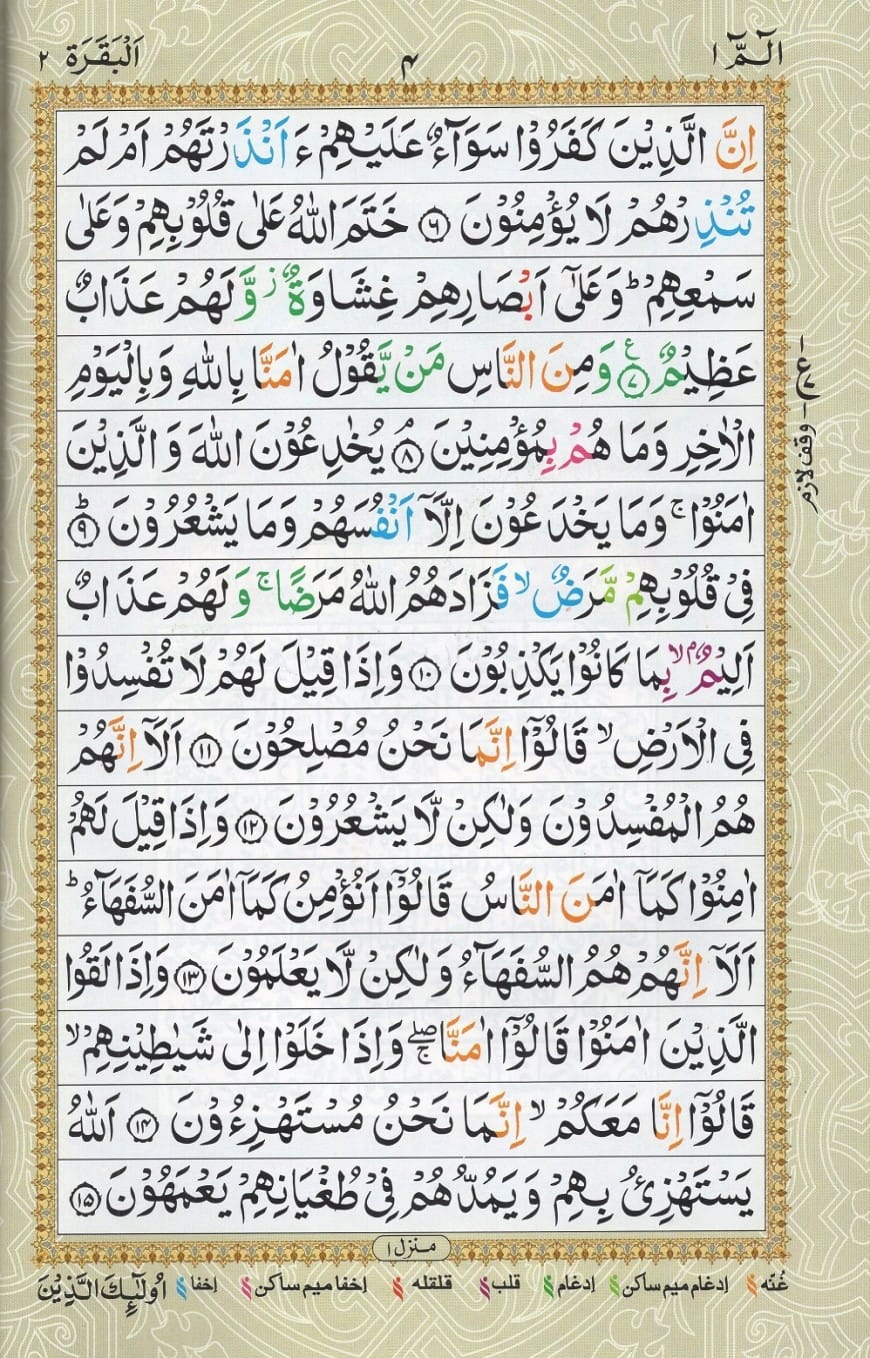 الٓمّٓ ۱ ۴ اَلْبَقَرَة ۲
اِنَّ الَّذِیْنَ كَفَرُوْا سَوَآءٌ عَلَیْهِمْ ءَاَنْذَرْتَهُمْ اَمْ لَمْ
تُنْذِرْهُمْ لَا یُؤْمِنُوْنَ ۶ خَتَمَ اللّٰهُ عَلٰی قُلُوْبِهِمْ وَعَلٰی
سَمْعِهِمْ ؕ وَعَلٰۤی اَبْصَارِهِمْ غِشَاوَةٌ ز وَّلَهُمْ عَذَابٌ
عَظِیْمٌ ۷ ع وَمِنَ النَّاسِ مَنْ یَّقُوْلُ اٰمَنَّا بِاللّٰهِ وَبِالْیَوْمِ
الْاٰخِرِ وَمَا هُمْ بِمُؤْمِنِیْنَ ۘ ۸ یُخٰدِعُوْنَ اللّٰهَ وَ الَّذِیْنَ
اٰمَنُوْا ۚ وَمَا یَخْدَعُوْنَ اِلَّاۤ اَنْفُسَهُمْ وَمَا یَشْعُرُوْنَ ؕ ۹
فِیْ قُلُوْبِهِمْ مَّرَضٌ ۙ فَزَادَهُمُ اللّٰهُ مَرَضًا ۚ وَ لَهُمْ عَذَابٌ
اَلِیْمٌۢ ۙ بِمَا كَانُوْا یَكْذِبُوْنَ ۱۰ وَاِذَا قِیْلَ لَهُمْ لَا تُفْسِدُوْا
فِی الْاَرْضِ ۙ قَالُوْۤا اِنَّمَا نَحْنُ مُصْلِحُوْنَ ۱۱ اَلَاۤ اِنَّهُمْ
هُمُ الْمُفْسِدُوْنَ وَلٰكِنْ لَّا یَشْعُرُوْنَ ۱۲ وَاِذَا قِیْلَ لَهُمْ
اٰمِنُوْا كَمَاۤ اٰمَنَ النَّاسُ قَالُوْۤا اَنُؤْمِنُ كَمَاۤ اٰمَنَ السُّفَهَآءُ ؕ
اَلَاۤ اِنَّهُمْ هُمُ السُّفَهَآءُ وَلٰكِنْ لَّا یَعْلَمُوْنَ ۱۳ وَاِذَا لَقُوا
الَّذِیْنَ اٰمَنُوْا قَالُوْۤا اٰمَنَّا ۖۚ وَاِذَا خَلَوْا اِلٰی شَیٰطِیْنِهِمْ ۙ
قَالُوْۤا اِنَّا مَعَكُمْ ۙ اِنَّمَا نَحْنُ مُسْتَهْزِءُوْنَ ۱۴ اَللّٰهُ
یَسْتَهْزِئُ بِهِمْ وَیَمُدُّهُمْ فِیْ طُغْیَانِهِمْ یَعْمَهُوْنَ ۱۵
ع وقف لازم
منزل ۱
غُنّه ادغام میم ساكن ادغام قلب قلقله اخفا میم ساكن اخفا اُولٰٓئِكَ الَّذِیْنَ